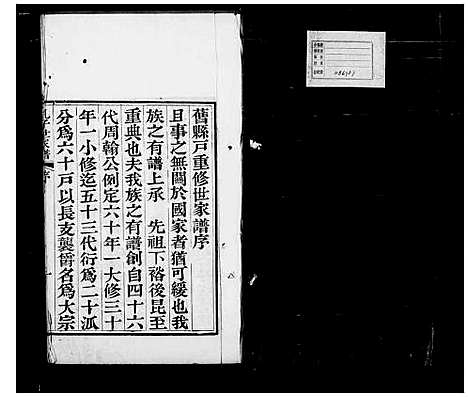 舊縣戶重修世家譜序
且事之無關於國家者猶可緩也我
族之有譜上承　先祖下裕後昆至
重典也夫我族之有譜創自四十六
代周翰公例定六十年一大修三十
年一小修迄五十三代衍為二十派
分為六十戶以長支襲爵名為大宗